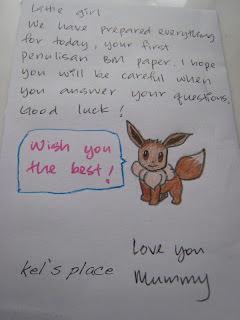 Little girl
We have prepared everything
for today, your first
penulisan BM paper. I hope
you will be careful when
you answer your questions.
Good luck!
Wish you
the best!
Love you
Mummy
kel's place